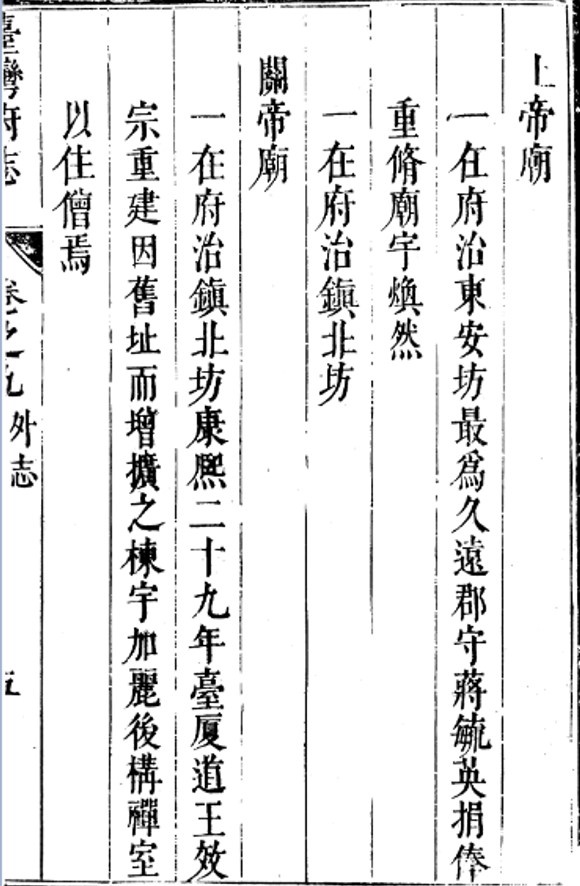 上帝廟
一在府治東安坊最爲久遠郡守蔣毓英捐俸
重脩廟宇煥然
一在府治鎮北坊
關帝廟
一在府治鎮北坊康熙二十九年臺厦道王效
宗重建因舊址而增擴之棟宇加麗後構禪室
以住僧焉
臺灣府志 卷之九 外志 五